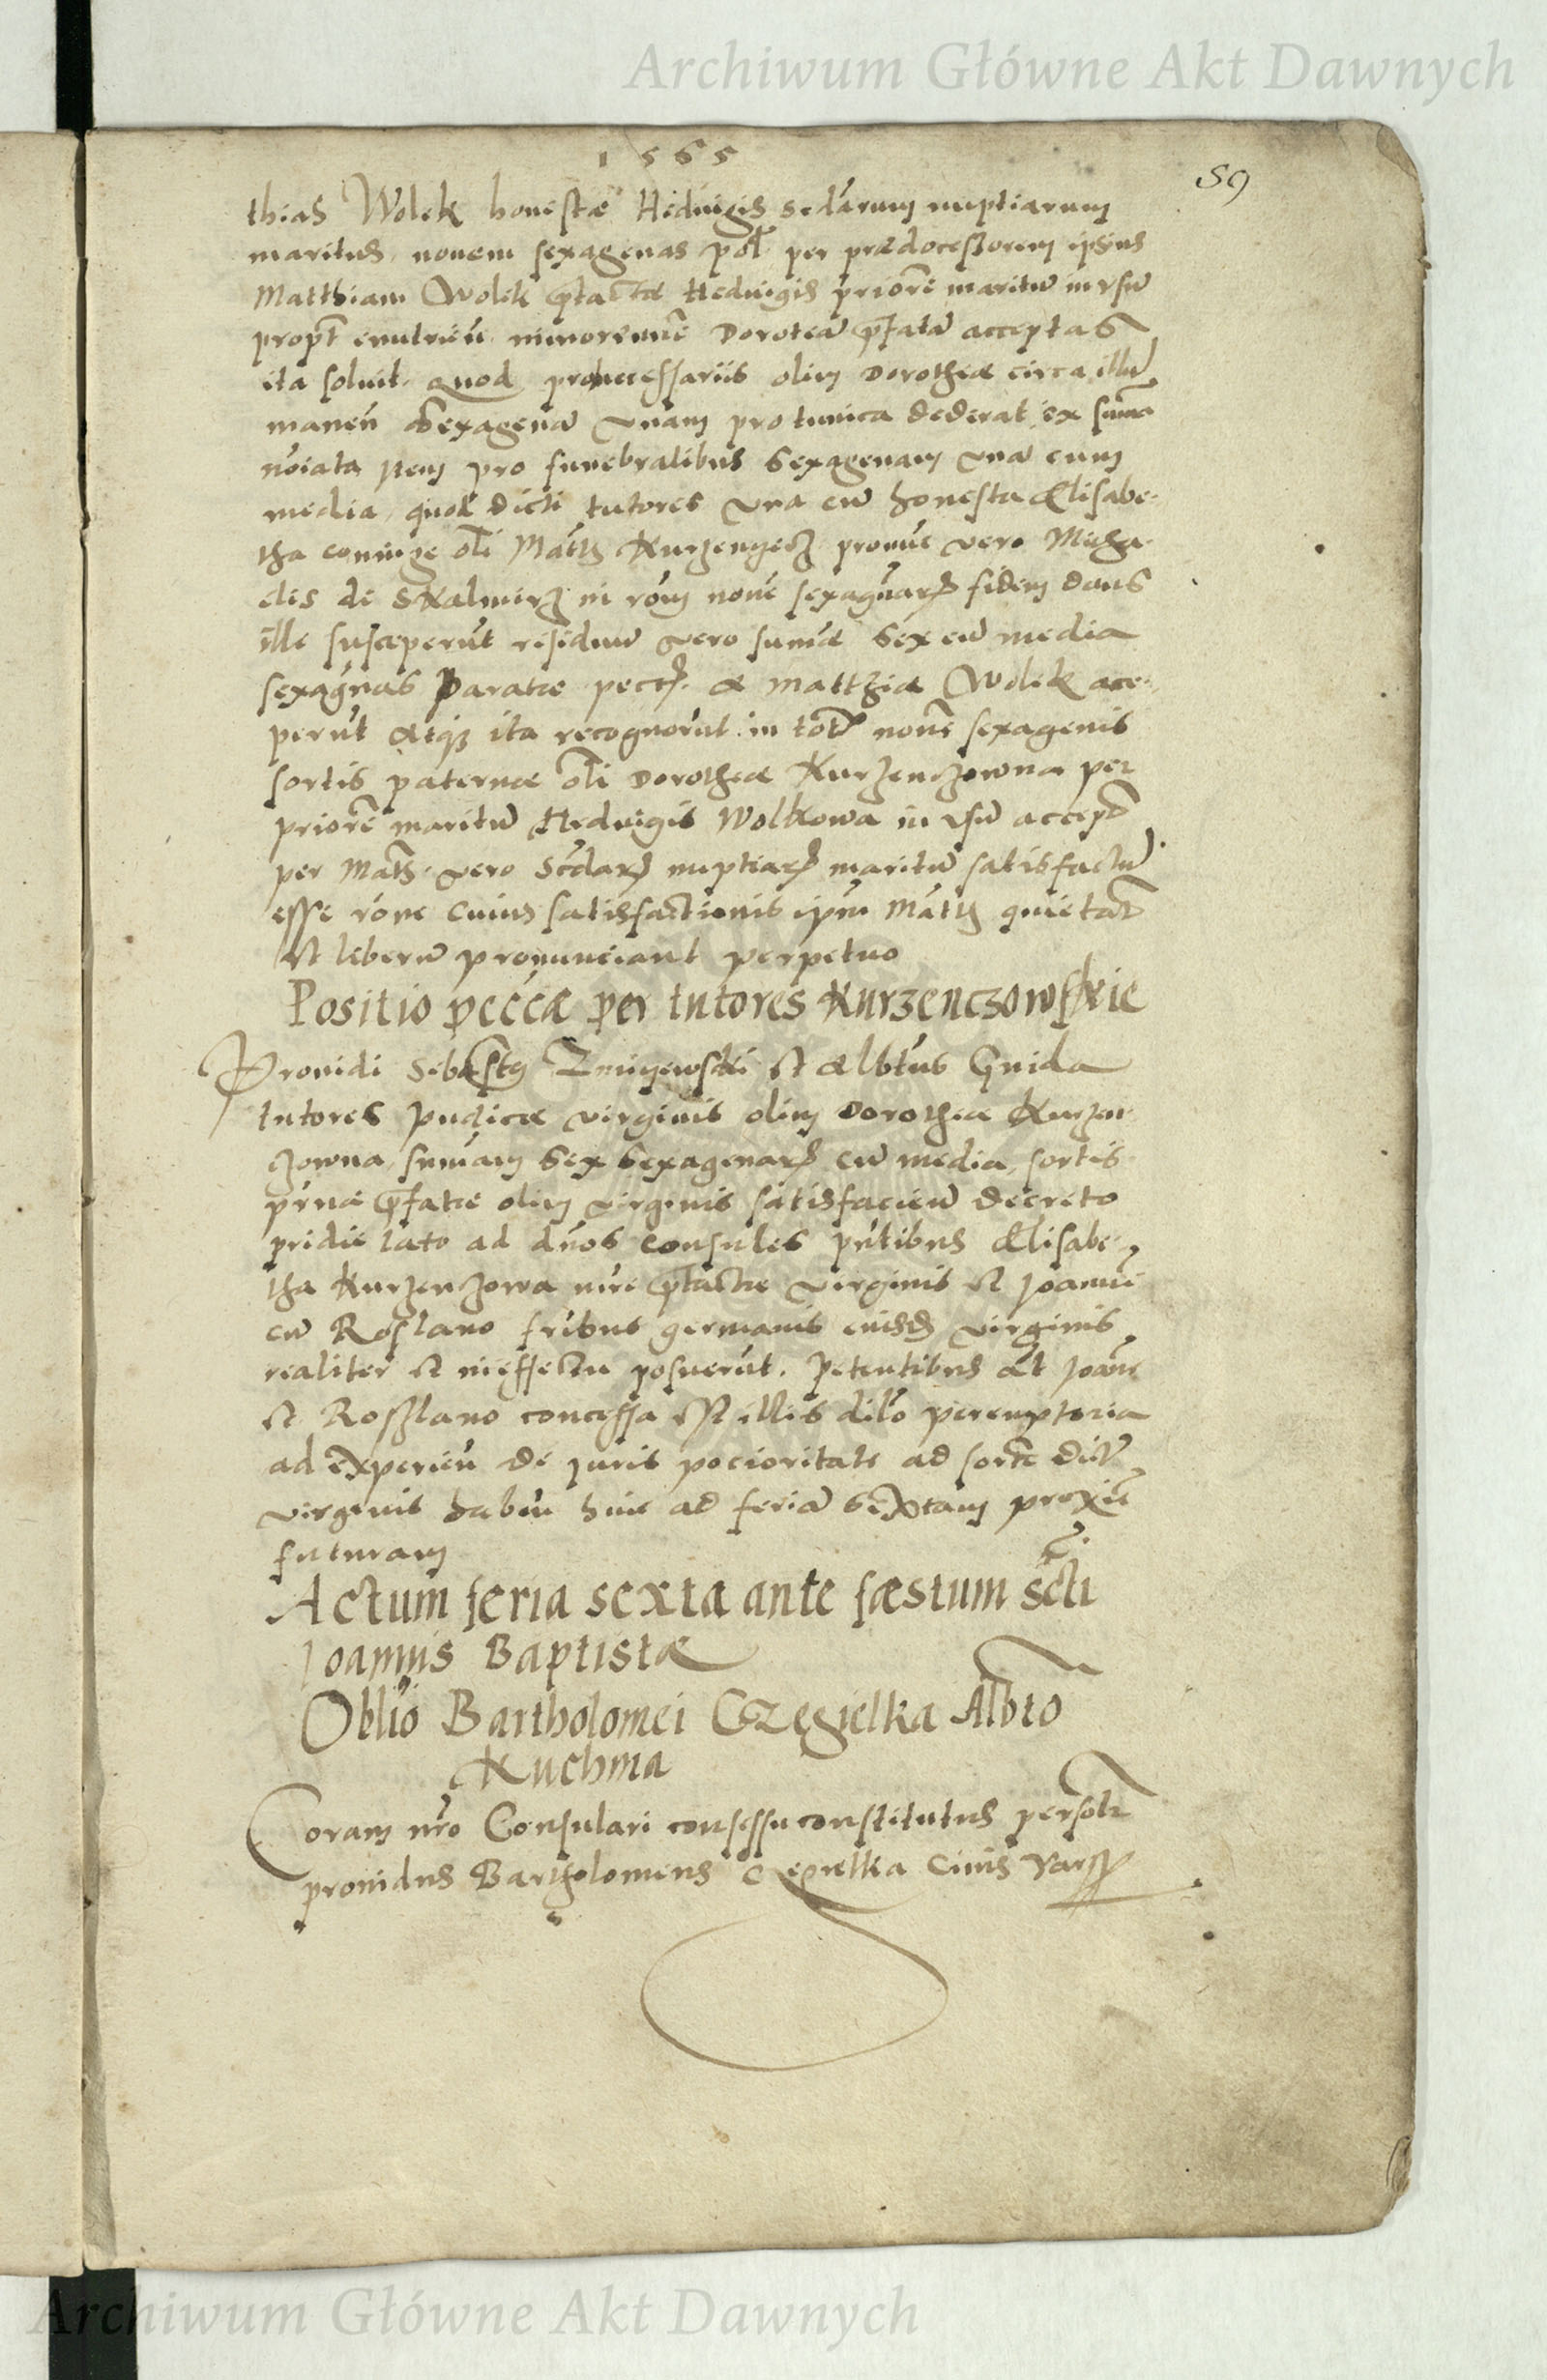 Archiwum Główne Akt Dawnych
1565
59
thias Wolek honestæ Hedvigis sedarum nuptiarum
maritus, novem sexagenas pol. per prædocessorem ipsius
Matthiam Wolek ptactæ Hedvigis priorē maritū in vsū
propt enutrien minorenne Doroteā pfatā acceptas
ita solvit. quod pro necessariis olim Dorotheæ circa illū
manen̄ Sexagenā vnam pro tunica dederat ex suma
noiata Item pro funebralibus Sexagenam vnā cum
media, quod dicti tutores vna cū honesta Elisabe-
tha coniuge oli Math Kurzenyecz provūc vero Micha-
elis de Skalmirz in rom novē sexagnarz fidem dans
ille susceperūt residuū vero sumæ Sex cū media
sexagnas paratæ pecc. a Matthia Wolek acce-
perūt atqz ita recognorūt in tot novē sexagenis
sortis paternæ oli Dorotheæ Kurzenczowna per
priorē maritū Hedvigis Wolkowa in vsū accept
per Math vero Scdarz nuptiarz maritū satisfactū
esse rone cuius satisfactionis ipm Math quietāt
et liberū pronunciant perpetuo
Positio peccæ per tutores Kurzenczowskie
Providi Sebastg Zmijewski et Albtus Gnida
tutores pudicæ virginis olim Dorotheæ Kurzen-
zowna, sumam Sex Sexagenarz cū media, sortis
prnæ pfatæ olim virginis satisfacien decreto
pridie lato ad dnos Consules pntibus Elisabe-
tha Kurzenzowa mre ptactæ virginis et Joanne
cū Roslano fribus germanis eiusd virginis
realiter et in effectu posuerūt. Petentibus At Joane
et Roszlano concessa est illis dilo peremptoria
ad experien de juris pocioritate ad sorte dict
virginis habiu hinc ad feriā Sextam proxie
futuram
Actum feria sexta ante fæstum scti
Joannis Baptistæ
Oblio Bartholomei Czegielka Albto
Kuchma
Coram nro Consulari consessu constitutus personlr
providus Bartholomeus Czegielka Civis Vars
Archiwum Główne Akt Dawnych